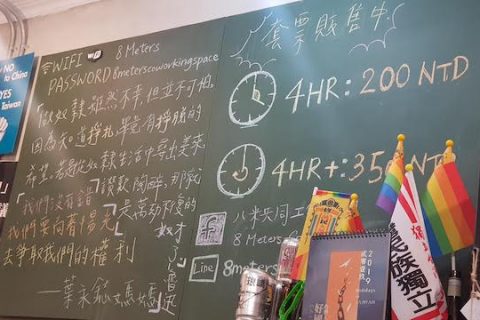 NO
to China
YES
Taiwan
WIFI 8 Meters
PASSWORD 8meterscoworkingspace
「做奴隸雖然不幸,但並不可怕,
因為知道掙扎,畢竟有掙脫的
希望。若是從奴隸生活中尋出美來,
讚歎、陶醉,那就
是萬劫不復的
奴才了」魯迅
「我們沒有錯
我們要向著陽光
去爭取我們的權利
——葉永鋕媽媽」
套票販售中
4HR:200 NTD
4HR+:350 NTD
八米共同工
8 Meters
Line
8meters
2019
民族獨立